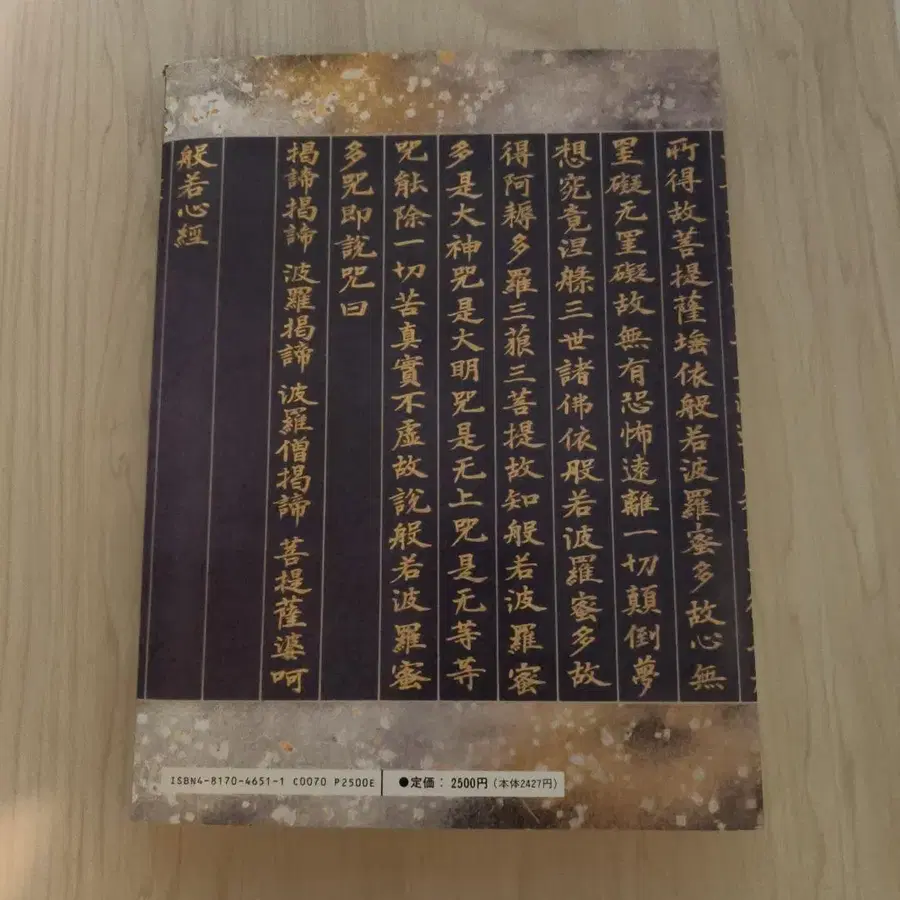 所得故菩提薩埵依般若波羅蜜多故心無
罣礙无罣礙故無有恐怖遠離一切顛倒夢
想究竟涅槃三世諸佛依般若波羅蜜多故
得阿耨多羅三藐三菩提故知般若波羅蜜
多是大神咒是大明咒是无上咒是无等等
咒能除一切苦真實不虛故說般若波羅蜜
多咒即說咒曰
揭諦揭諦 波羅揭諦 波羅僧揭諦 菩提薩婆呵
般若心經
ISBN4-8170-4651-1 C0070 P2500E
●定価：2500円（本体2427円）